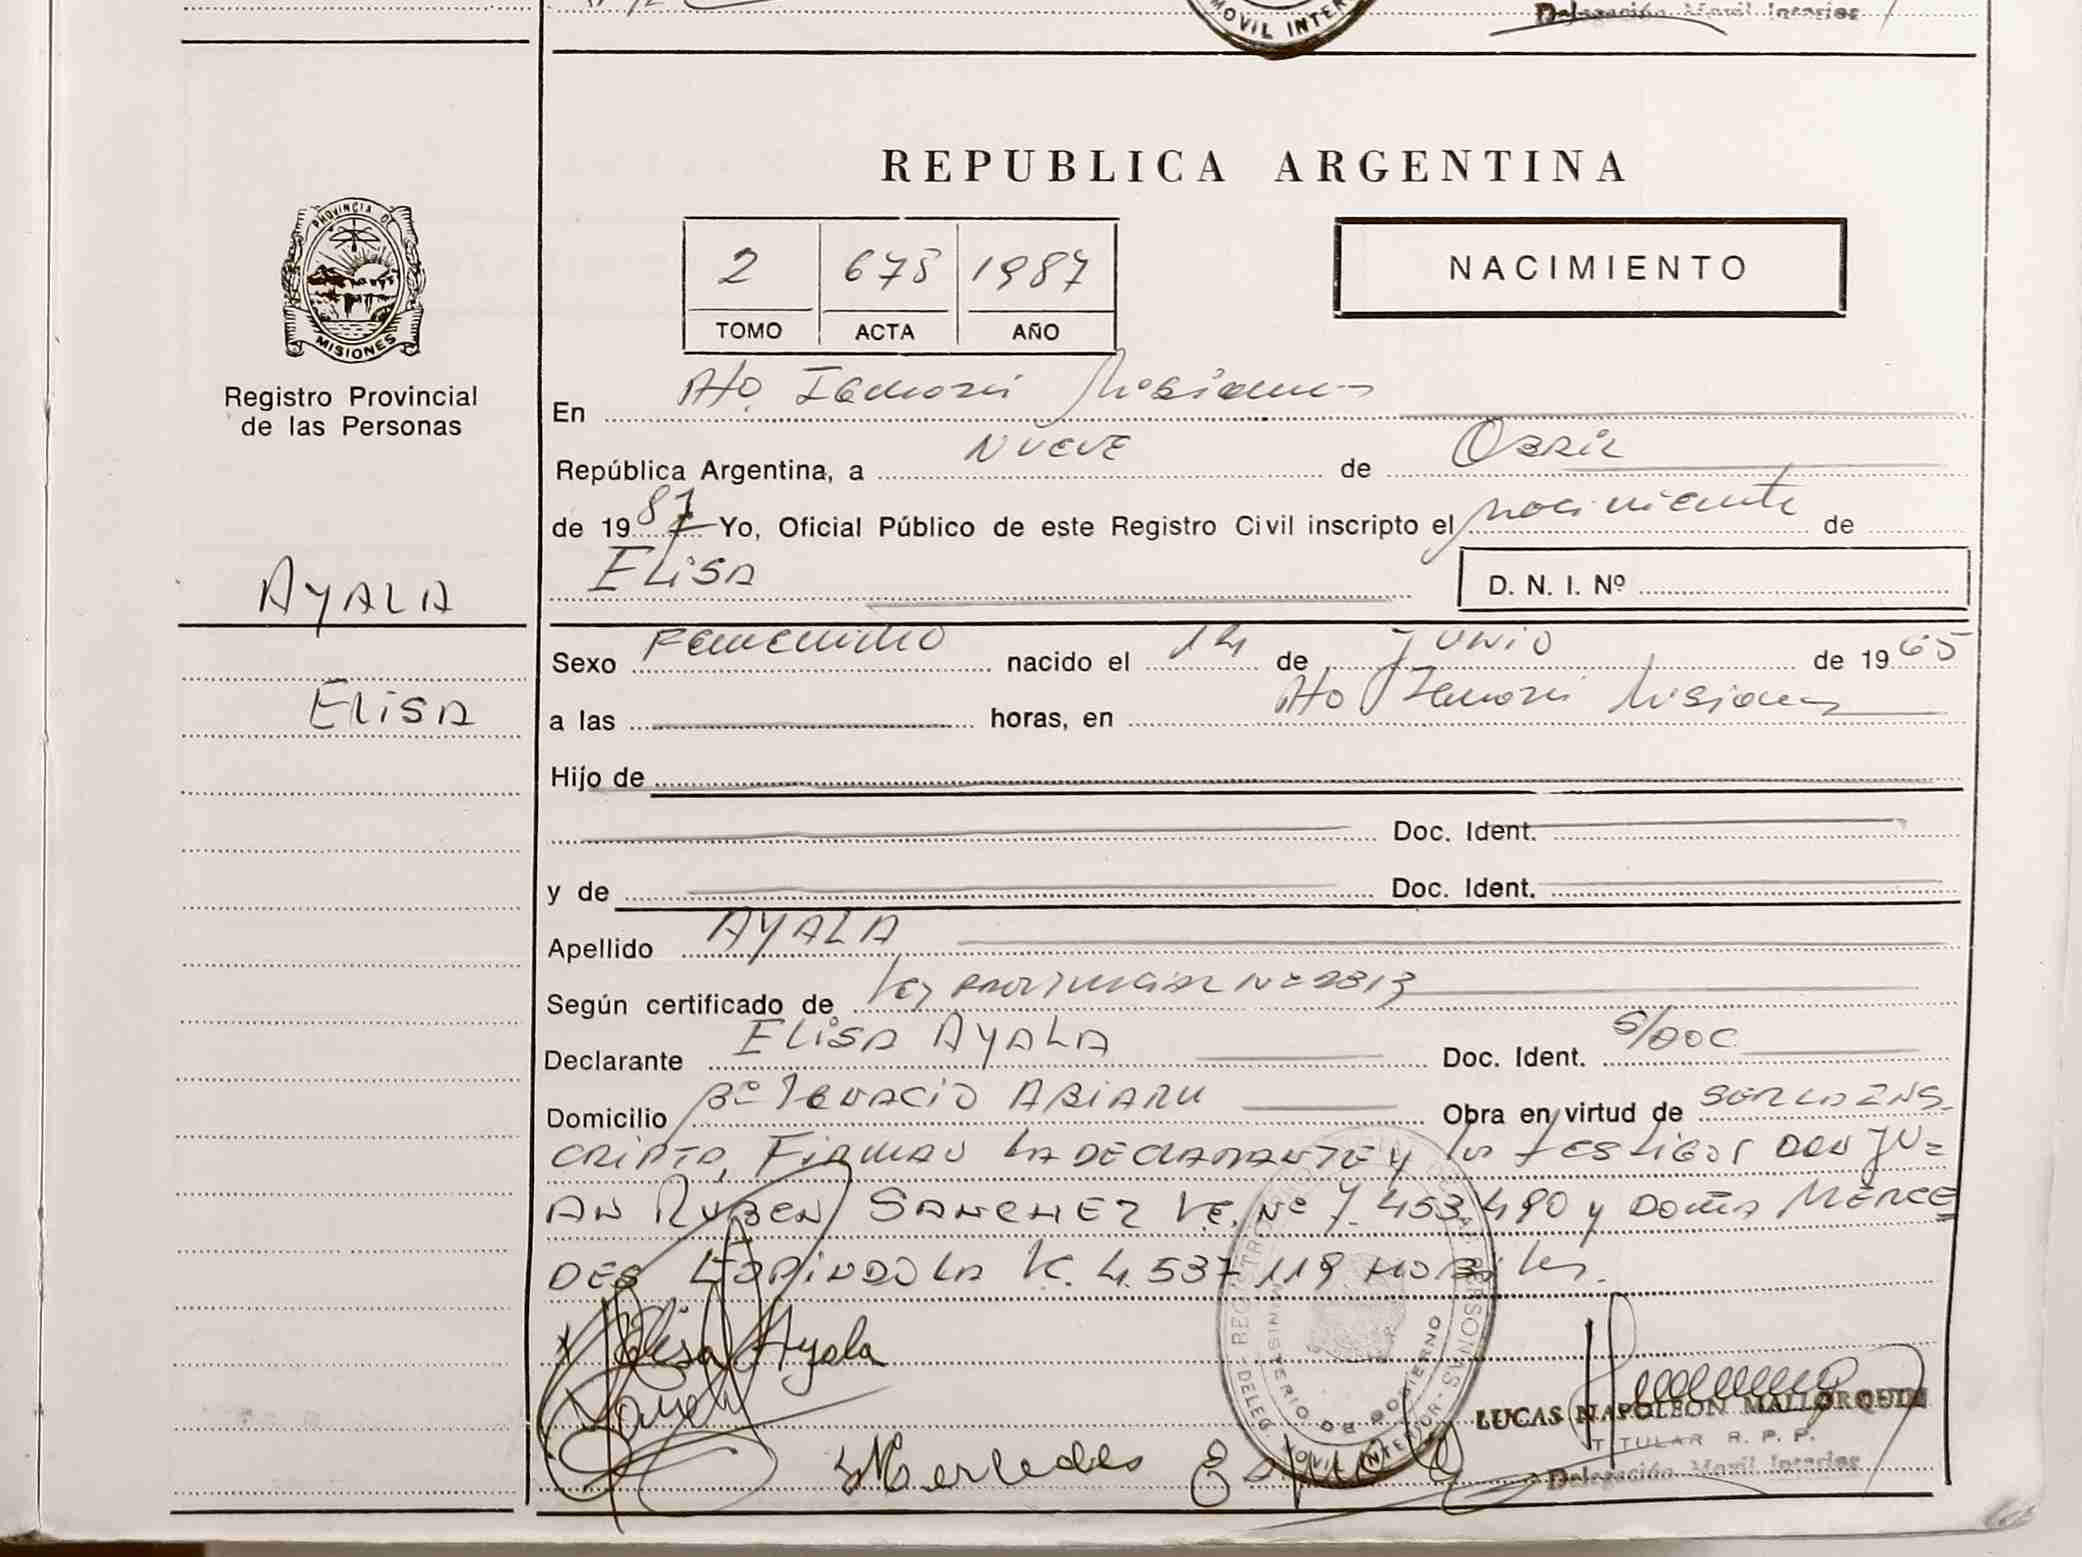 MOVIL INTER
Delegación Movil Interior
REPUBLICA ARGENTINA
PROVINCIA DE
MISIONES
Registro Provincial
de las Personas
2 675 1987
TOMO ACTA AÑO
NACIMIENTO
En Pto. Misiones
República Argentina, a NUEVE de
de 1987 Yo, Oficial Público de este Registro Civil inscripto el nacimiento de
ELISA D. N. I. Nº
AYALA
ELISA
Sexo Femenino nacido el 14 de JUNIO de 1965
a las horas, en Pto Misiones
Hijo de
Doc. Ident.
y de Doc. Ident.
Apellido AYALA
Según certificado de Ley PROVINCIAL Nº 2313
Declarante ELISA AYALA Doc. Ident. S/DOC
Domicilio Bº IGNACIO ABIARU Obra en virtud de SER LA INS-
CRIPTA, FIRMAN LA DECLARANTE y los testigos DON JU=
AN RUBEN SANCHEZ L.E. Nº 7.453.490 y DOÑA MERCE
DES LA 4.537.119
Elisa Ayala
Mercedes
REGISTRO PERSONAS
MINISTERIO DE GOBIERNO
DELEG. MOVIL INTERIOR
LUCAS NAPOLEON MALLORQUIN
TITULAR R. P. P.
Delegación Movil Interior